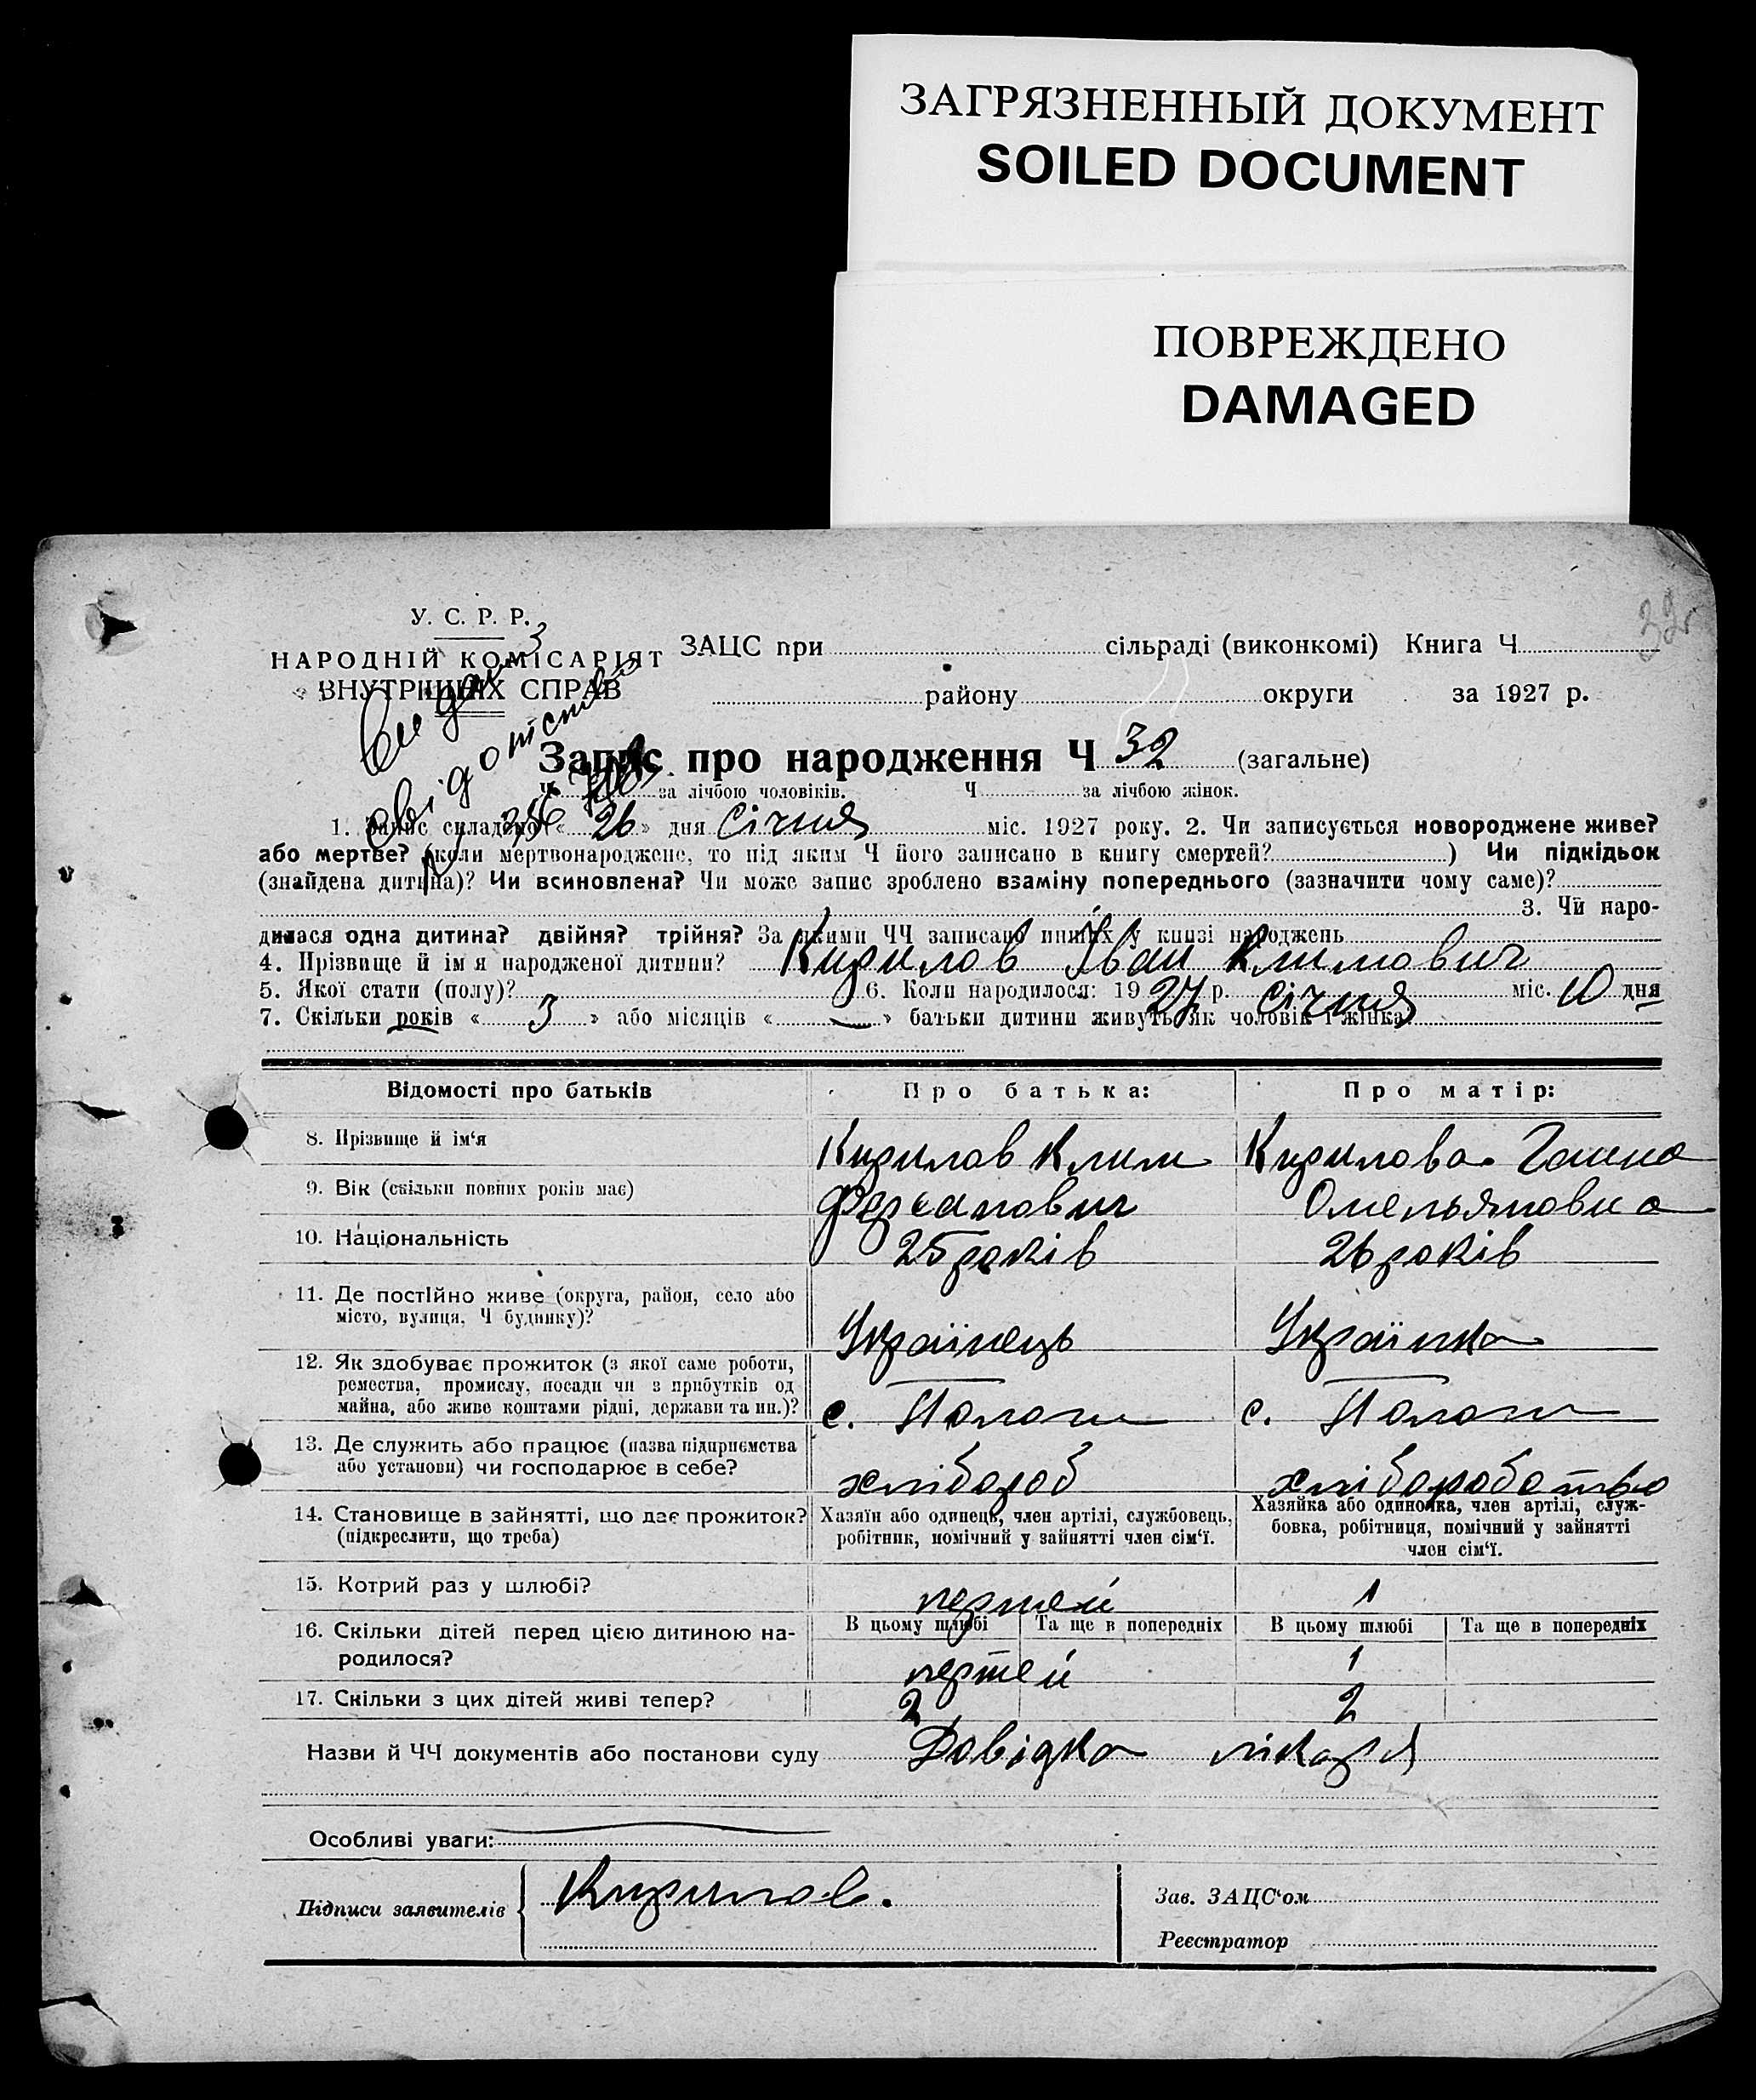 ЗАГРЯЗНЕННЫЙ ДОКУМЕНТ
SOILED DOCUMENT
ПОВРЕЖДЕНО
DAMAGED
39
У. С. Р. Р.
НАРОДНІЙ КОМІСАРІЯТ
ВНУТРІШНІХ СПРАВ
ЗАЦС при сільраді (виконкомі) Книга Ч
району округи за 1927 р.
Запис про народження Ч 32 (загальне)
Ч за лічбою чоловіків. Ч за лічбою жінок.
1. Запис складено « 26 » дня Січня міс. 1927 року. 2. Чи записується новороджене живе?
або мертве? (коли мертвонароджене, то під яким Ч його записано в книгу смертей? ) Чи підкідьок
(знайдена дитина)? Чи всиновлена? Чи може запис зроблено взаміну попереднього (зазначити чому саме)?
3. Чи наро-
дилася одна дитина? двійня? трійня? За якими ЧЧ записано инших у книзі народжень
4. Прізвище й імя народженої дитини? Кирилов Іван Климович
5. Якої стати (полу)? 6. Коли народилося: 1927 р. Січня міс. 10 дня
7. Скільки років « 3 » або місяців « — » батьки дитини живуть як чоловік і жінка
Відомості про батьків Про батька: Про матір:
8. Прізвище й ім‘я Кирилов Клим Кирилова Ганна
9. Вік (скільки повних років має) Омельяновна
10. Національність 25 років 26 років
11. Де постійно живе (округа, район, село або
місто, вулиця, Ч будинку)? Українець Українка
12. Як здобуває прожиток (з якої саме роботи,
ремества, промислу, посади чи з прибутків од
майна, або живе коштами рідні, держави та ин.)? с. Пологи с. Пологи
13. Де служить або працює (назва підприємства
або установи) чи господарює в себе? хлібороб хлібороботво
14. Становище в зайнятті, що дає прожиток? Хазяїн або одинець, член артілі, службовець, Хазяйка або одиночка, член артілі, служ-
(підкреслити, що треба) робітник, помічний у зайнятті член сім‘ї. бовка, робітниця, помічний у зайнятті
член сім‘ї.
15. Котрий раз у шлюбі? першей 1
16. Скільки дітей перед цією дитиною на- В цьому шлюбі Та ще в попередніх В цьому шлюбі Та ще в попередніх
родилося? першей 1
17. Скільки з цих дітей живі тепер? 2 2
Назви й ЧЧ документів або постанови суду Довідка лікаря
Особливі уваги:
Підписи заявителів Кирилов.
Зав. ЗАЦС‘ом
Реєстратор